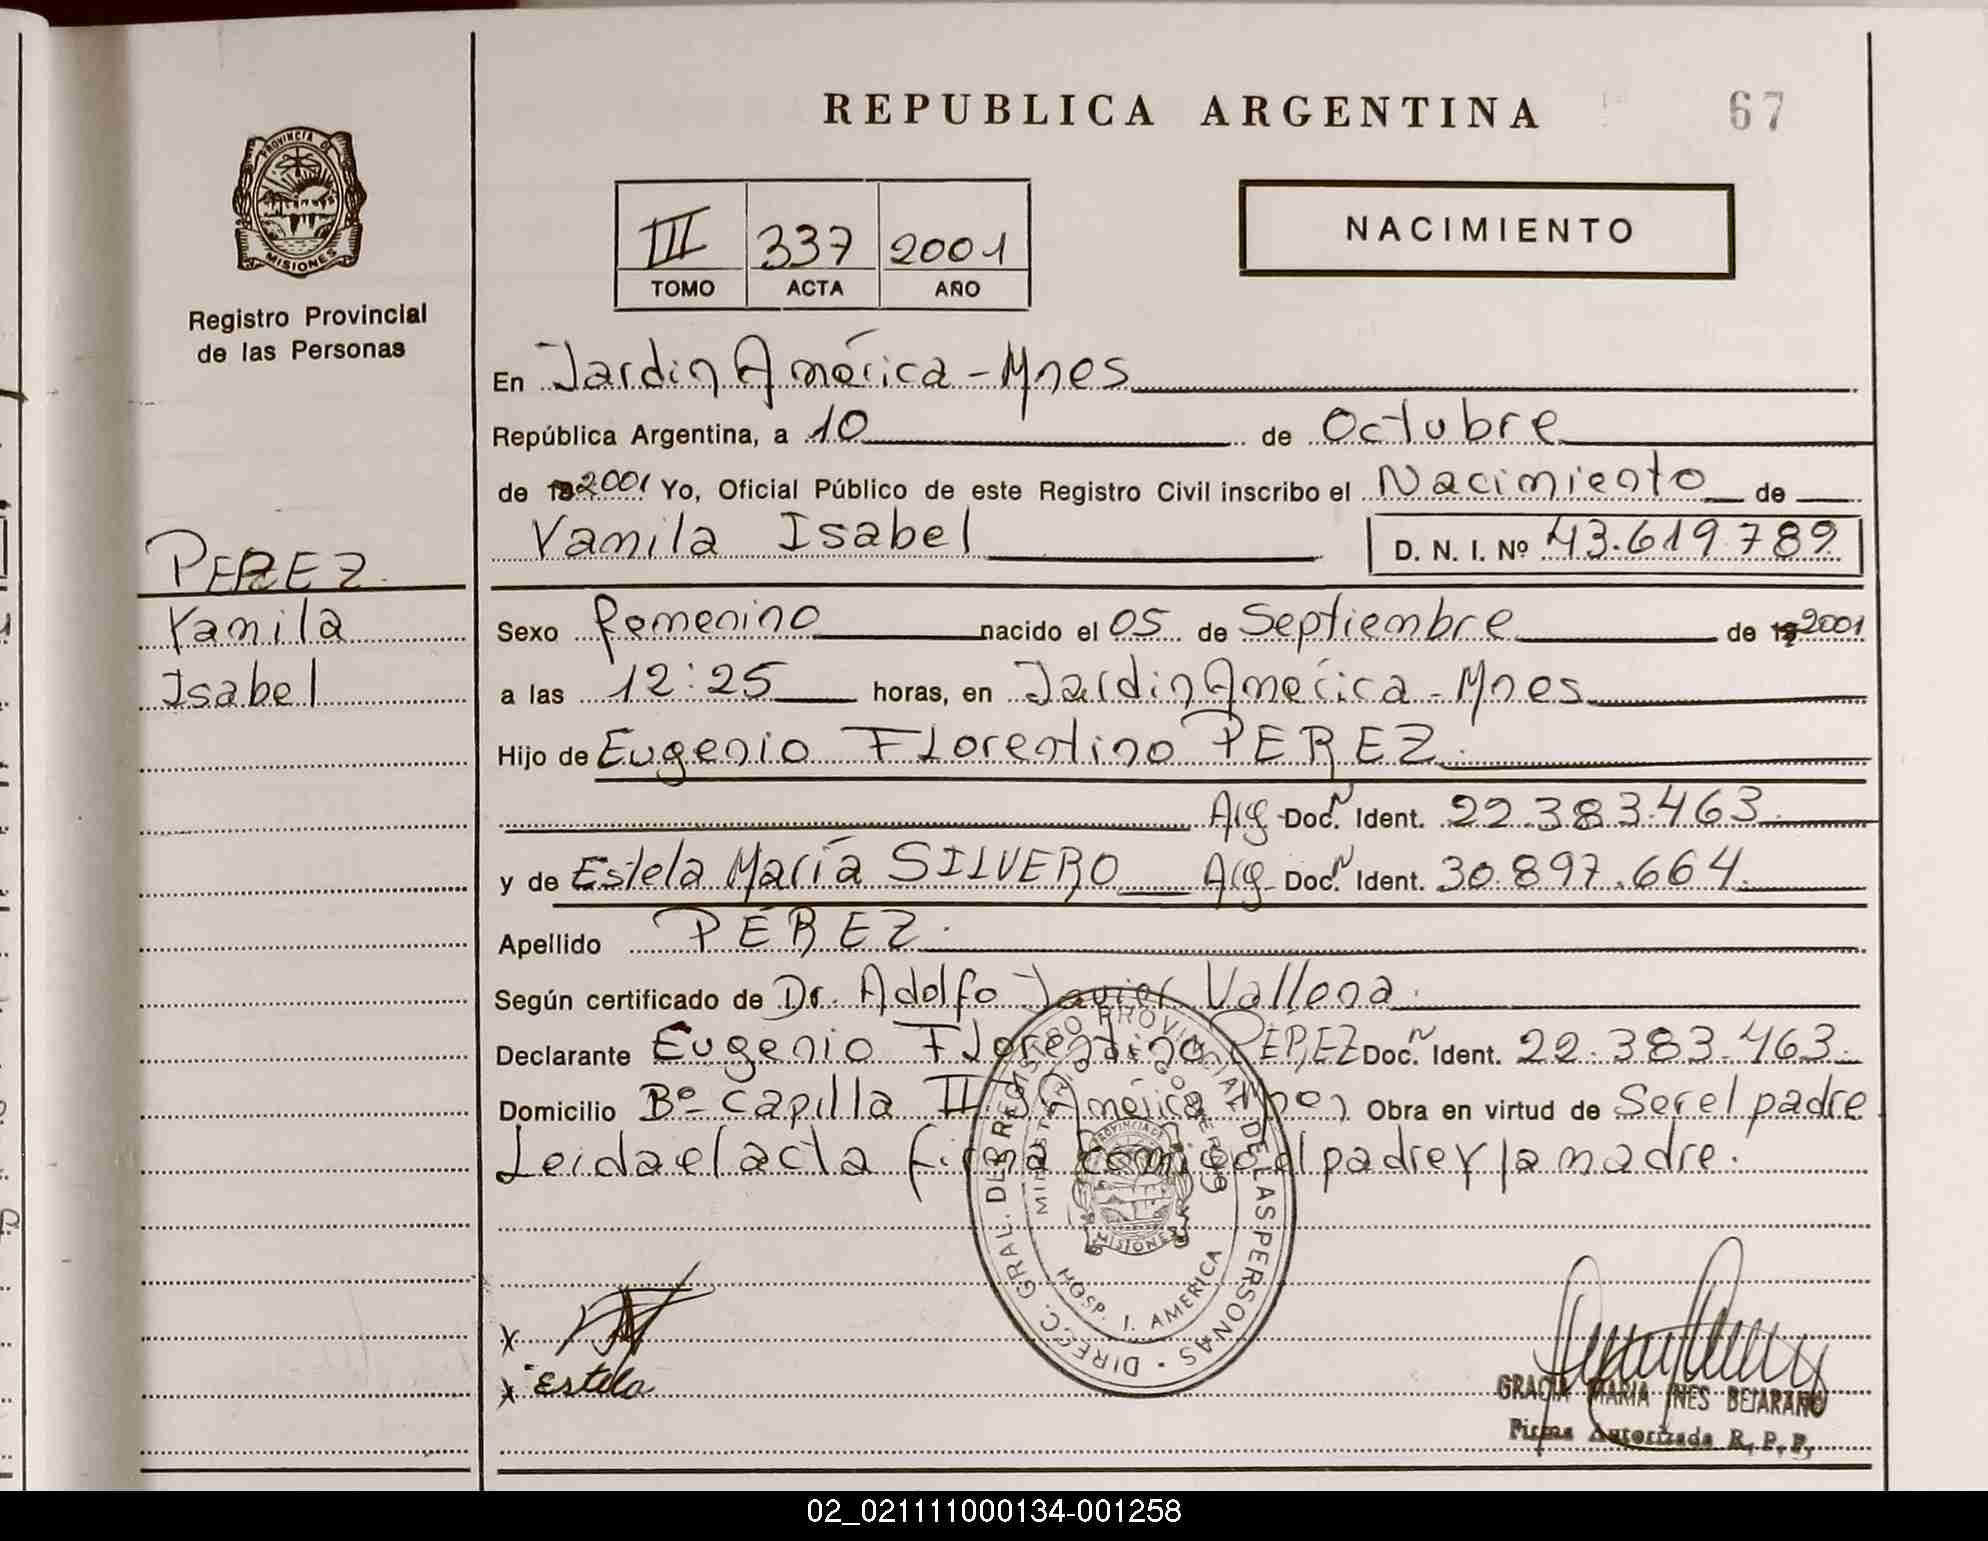 REPUBLICA ARGENTINA
67
PROVINCIA DE
MISIONES
Registro Provincial
de las Personas
III 337 2001
TOMO ACTA AÑO
NACIMIENTO
En Jardin América - Mnes
República Argentina, a 10 de Octubre
de 2001 Yo, Oficial Público de este Registro Civil inscribo el Nacimiento de
Yamila Isabel D. N. I. Nº 43.619.789
PEREZ
Yamila
Isabel
Sexo femenino nacido el 05 de Septiembre de 2001
a las 12:25 horas, en Jardin América - Mnes
Hijo de Eugenio Florentino PEREZ.
Arg Doc. Ident. 22.383.463
y de Estela María SILVERO Arg Doc. Ident. 30.897.664
Apellido PEREZ.
Según certificado de Dr. Adolfo Javier Vallena.
Declarante Eugenio Florentino PEREZ Doc. Ident. 22.383.463
Domicilio Bº Capilla II J América Mnes Obra en virtud de Ser el padre
Leida el acta firma conmigo el padre y la madre.
DIREC. GRAL. DE REGISTRO PROVINCIAL DE LAS PERSONAS
MINISTERIO DE GOBIERNO
PROVINCIA DE
MISIONES
HOSP. J. AMERICA
x
x Estela
GRACIA MARIA INES BEJARANO
Firma Autorizada R. P. P.
02_021111000134-001258